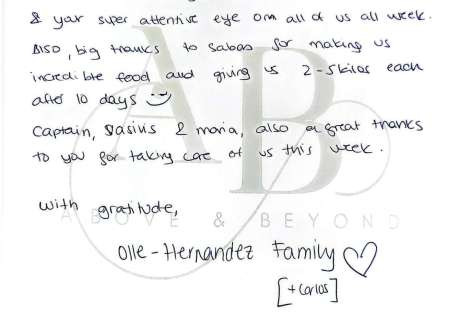 & your super attentive eye on all of us all week.
Also, big thanks to Sabas for making us
incredible food and giving us 2-5kilos each
after 10 days
Captain, Sasius & maria, also a great thanks
to you for taking care of us this week.
with gratitude,
ABOVE & BEYOND
Olle-Hernandez Family
[+ Carlos]